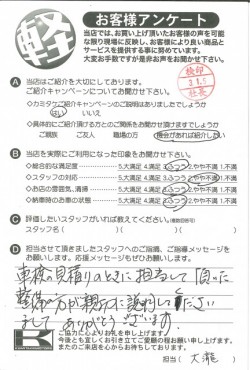 軽
お客様アンケート
当店では、お買い上げ頂いたお客様の声を可能
な限り現場に反映し、お客様により良い商品と
サービスを提供する事に努めています。
大変お手数ですが是非お声をお聞かせ下さい。
A 当店はご紹介を大切にしてあります。
ご紹介キャンペーンについてお聞かせ下さい。
検印
社長
◇カミタケご紹介キャンペーンのご説明はありましたでしょうか
はい いいえ
◇具体的にご紹介頂ける方とのご関係をお聞かせ頂けますでしょうか
ご親族 ご友人 職場の方 機会があれば紹介したい
B 当店を実際にご利用になった印象をお聞かせ下さい。
◇総合的な満足度 5大満足 4.満足 3.ふつう 2.やや不満 1.不満
◇スタッフの対応 5大満足 4.満足 3.ふつう 2.やや不満 1.不満
◇お店の雰囲気、清掃 5大満足 4.満足 3.ふつう 2.やや不満 1.不満
◇納車時のお車の状態 5大満足 4.満足 3.ふつう 2.やや不満 1.不満
C 評価したいスタッフがいれば教えてください。(複数回答可)
スタッフ名( )( )( )
D 担当させて頂きましたスタッフへのご指摘、ご指導
メッセージをお願いします。応援メッセージもお願いします。
車検の見積りのときに担当して頂いた
整備の方が親切に説明してくださいまして
ありがとうございます。
K
ご協力に心よりお礼を申し上げます。
今後とも宜しくお引き立てご愛顧の程お願い申し上げます。
またのご来店を心からお待ちしております。
担当( 大瀧 )